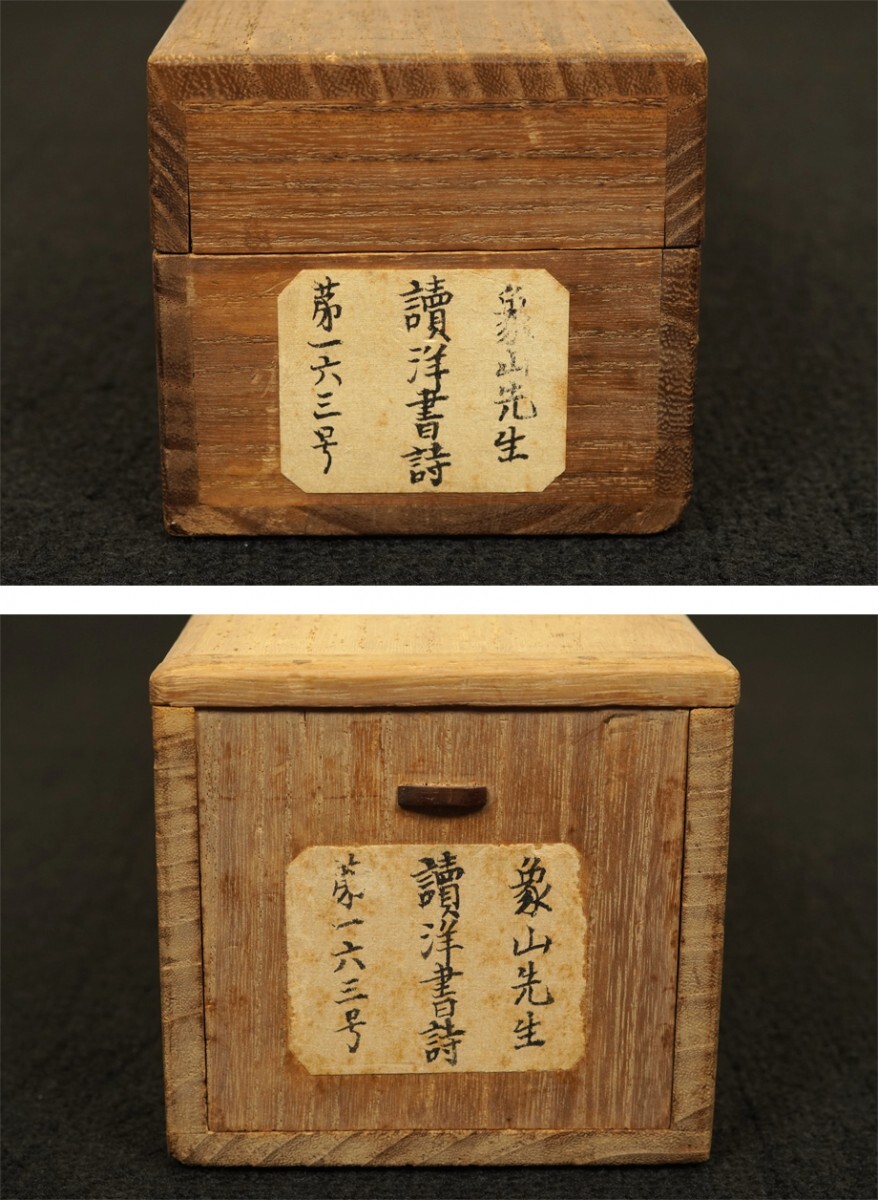 象山先生
讀洋書詩
第一六三号
象山先生
讀洋書詩
第一六三号